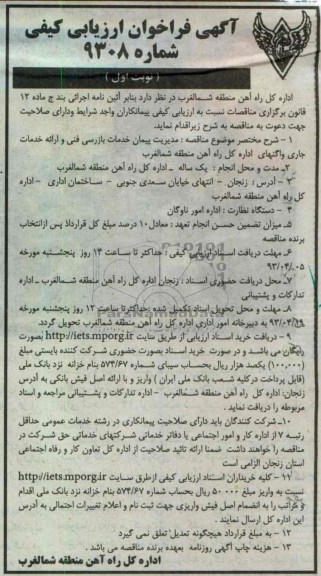 آگهی فراخوان ارزیابی کیفی
شماره ۹۳۰۸
( نوبت اول )
اداره کل راه آهن منطقه شمالغرب در نظر دارد بنابر آئین نامه اجرائی بند ج ماده ۱۲
قانون برگزاری مناقصات نسبت به ارزیابی کیفی پیمانکاران واجد شرایط ودارای صلاحیت
جهت دعوت به مناقصه به شرح زیراقدام نماید.
۱ - شرح مختصر موضوع مناقصه : مدیریت پیمان خدمات بازرسی فنی و ارائه خدمات
جاری واگنهای اداره کل راه آهن منطقه شمالغرب
۲- مدت و محل انجام : یک ساله ـ اداره کل راه آهن منطقه شمالغرب
۳ - آدرس : زنجان - انتهای خیابان سعدی جنوبی - ساختمان اداری - اداره
کل راه آهن منطقه شمالغرب
۴ - دستگاه نظارت : اداره امور ناوگان
۵- میزان تضمین حسن انجام تعهد : معادل ۱۰ درصد مبلغ کل قرارداد پس ازانتخاب
برنده مناقصه
۶- مهلت دریافت اسناد ارزیابی کیفی : حداکثر تا ساعت ۱۴ روز پنجشنبه مورخه
۹۳/۰۴/۰۵
۷- محل دریافت حضوری اسناد : زنجان اداره کل راه آهن منطقه شمالغرب ـ اداره
تدارکات و پشتیبانی
۸- مهلت و محل تحویل اسناد تکمیل شده :حداکثر تا ساعت ۱۲ روز پنجشنبه مورخه
۹۳/۰۴/۱۹ به دبیرخانه امور اداری اداره کل راه آهن منطقه شمالغرب تحویل گردد.
۹ - دریافت خرید اسناد ارزیابی از طریق سایت http://iets.mporg.ir بصورت
رایگان می باشد و در صورت خرید اسناد بصورت حضوری شرکت کننده بایستی مبلغ
(۱۰۰,۰۰۰) یکصد هزار ریال بحساب سیبای شماره ۵۷۴/۶۷ بنام خزانه نزد بانک ملی
(قابل پرداخت درکلیه شعب بانک ملی ایران ) واریز و با ارائه اصل فیش بانکی به آدرس
زنجان: اداره کل راه آهن منطقه شمالغرب - اداره تدارکات و پشتیبانی مراجعه و اسناد
مربوطه را دریافت نماید .
۱۰- شرکت کنندگان باید دارای صلاحیت پیمانکاری در رشته خدمات عمومی حداقل
رتبه ۷ از اداره کار و امور اجتماعی یا دفاتر خدماتی شرکتهای خدماتی حق شرکت در
مناقصه را خواهند داشت ضمنا ارائه تائید صلاحیت از اداره کل تعاون کار و رفاه اجتماعی
استان زنجان الزامی است
۱۱ - کلیه خریداران اسناد ارزیابی کیفی ازطرق سایت http://iets.mporg.ir
نسبت به واریز مبلغ ۵۰۰۰۰ ریال بحساب شماره ۵۷۴/۶۷ بنام خزانه نزد بانک ملی اقدام
و مراتب را به انضمام اصل فیش واریزی جهت ثبت نام و اعلام تغییرات احتمالی به آدرس
این اداره کل ارسال نمایند .
۱۲ - به مبلغ قرارداد هیچگونه تعدیل تعلق نمی گیرد
۱۳ - هزینه چاپ آگهی روزنامه بعهده برنده مناقصه می باشد .
اداره کل راه آهن منطقه شمالغرب